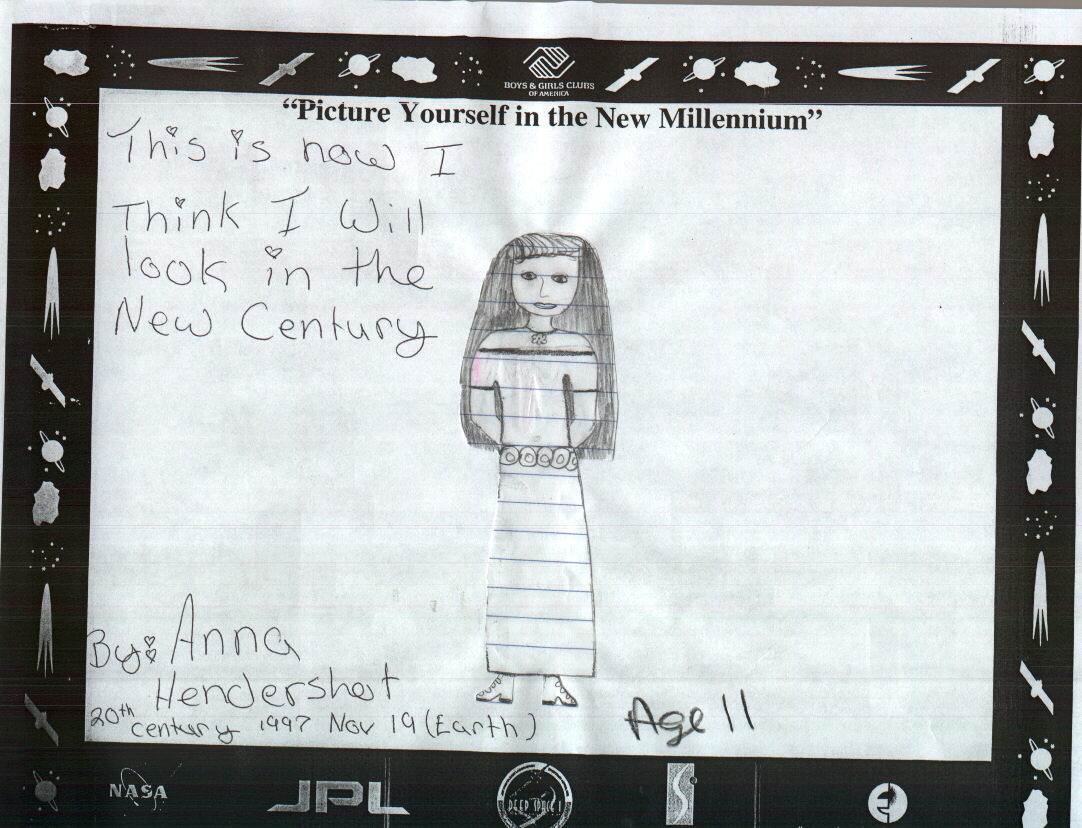 BOYS & GIRLS CLUBS
OF AMERICA
“Picture Yourself in the New Millennium”
This is now I
Think I Will
look in the
New Century
By: Anna
Hendershot
20th century 1997 Nov 19 (Earth)
Age 11
NASA
JPL
DEEP SPACE 1